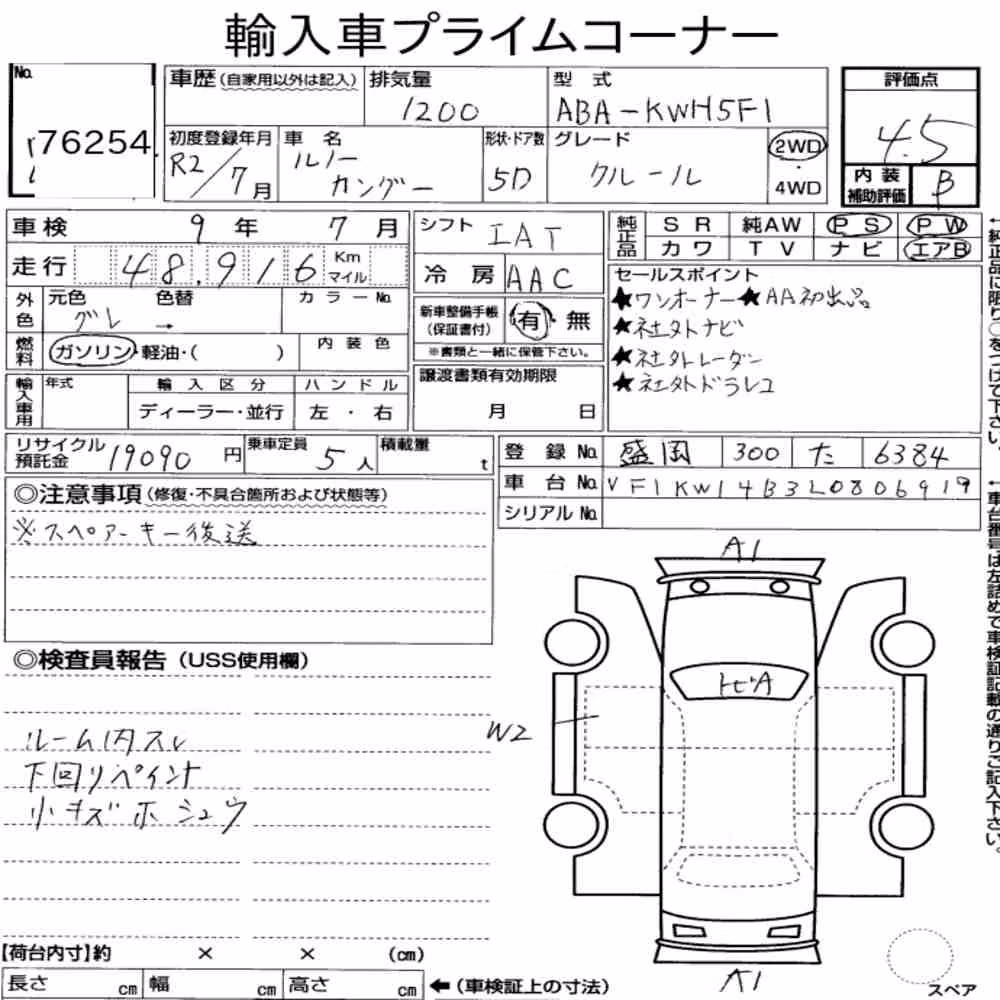 輸入車プライムコーナー
No.
76254
車歴(自家用以外は記入)
排気量
1200
型 式
ABA-KWH5F1
評価点
4.5
初度登録年月
R2/7月
車 名
ルノー
カングー
形状・ドア数
5D
グレード
クルール
2WD
・
4WD
内 装
補助評価
B
車検 9年 7月
シフト IAT
純正品
SR 純AW PS PW
カワ TV ナビ エアB
走行 48,916 Km
マイル
冷 房 AAC
セールスポイント
★ワンオーナー★AA初出品
★社外ナビ
★社外レーダー
★社外ドラレコ
外色
元色 色替 カラーNo.
グレ →
新車整備手帳
(保証書付)
有・無
※書類と一緒に保管下さい。
燃料
ガソリン・軽油・( )
内 装 色
輸入車用
年式
輸 入 区 分
ハ ン ド ル
ディーラー・並行
左 ・ 右
譲渡書類有効期限
月 日
←純正品に限り○をつけて下さい。
リサイクル
預託金
19090円
乗車定員
5人
積載量
t
登 録 No. 盛岡 300 た 6384
車 台 No. VF1KW14B3L0806919
シリアル No.
←車台番号は左詰めで車検証記載の通りご記入下さい。
◎注意事項(修復・不具合箇所および状態等)
※スペアーキー後送
◎検査員報告(USS使用欄)
ルーム内スレ
下回リペイント
小キズホシュウ
A1
トビA
W2
A1
スペア
【荷台内寸】約 × × (cm)
長さ cm 幅 cm 高さ cm ←(車検証上の寸法)